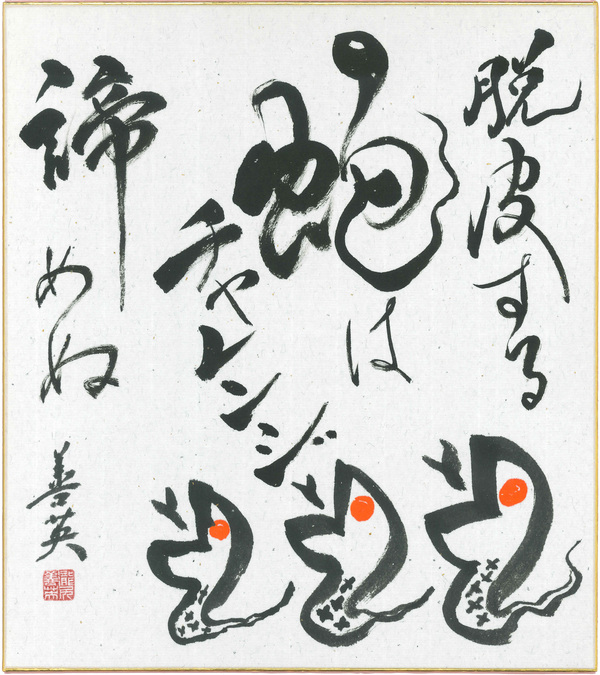 脱皮する
蛇は
チャレンジ
諦めぬ
善英